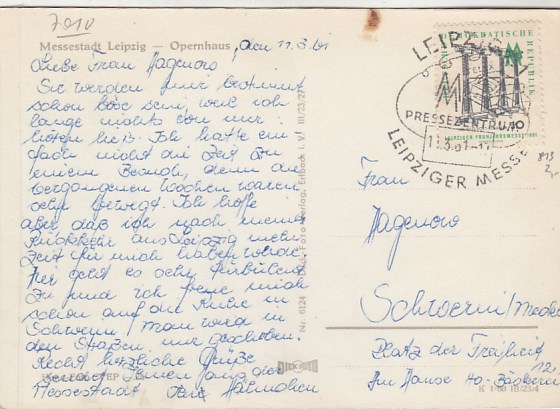 7010
Messestadt Leipzig — Opernhaus, den 11.3.61
Liebe Frau Hagenow!
Sie werden mir bestimmt
schon böse sein, weil ich
lange nichts von mir
hören ließ. Ich hatte ein-
fach nicht die Zeit für
einen Besuch, denn die
vergangenen Wochen waren
sehr bewegt. Ich hoffe
aber daß ich nach meiner
Rückkehr aus Leipzig mehr
Zeit für mich haben werde.
Hier geht es sehr turbulent
zu und ich freue mich
schon auf die Ruhe in
Schwerin. Man wird in
den Straßen nur geschoben.
Recht herzliche Grüße
sendet Ihnen aus der
Messestadt Ihre
Nr. 6124
III/23/27
DEUTSCHE DEMOKRATISCHE REPUBLIK
LEIPZIGER FRÜHJAHRSMESSE 1961
LEIPZIG
PRESSEZENTRUM
11.3.61-17
LEIPZIGER MESSE
10
Frau
Hagenow
Schwerin/Meckl.
Platz der Freiheit
Im Hause Ho-Bäckerei
K 1/60 III/23/4